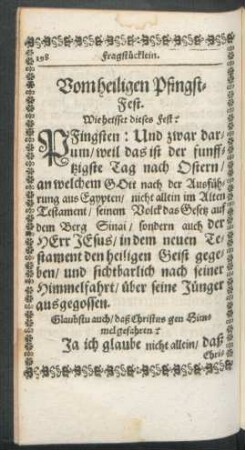 198 Fragstücklein.
Vom heiligen Pfingst-
Fest.
Wie heisset dieses Fest?
PFingsten: Und zwar dar-
um/ weil das ist der funff-
tzigste Tag nach Ostern/
an welchem GOtt nach der Ausfüh-
rung aus Egypten/ nicht allein im Alten
Testament/ seinem Volck das Gesetz auf
dem Berg Sinai/ sondern auch der
HErr JEsus/ in dem neuen Te-
stament den heiligen Geist gege-
ben/ und sichtbarlich nach seiner
Himmelfahrt/ über seine Jünger
ausgegossen.
Glaubstu auch/ daß Christus gen Him-
mel gefahren?
Ja ich glaube nicht allein/ daß
Chri-